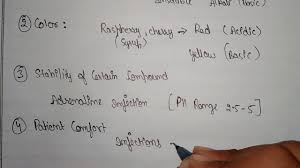 ② Color :
Raspberry, cherry → Red (Acidic)
(Syrup)
Yellow (Basic)
③ Stability of Certain Compound
Adrenaline Injection [PH Range 2.5-5]
④ Patient Comfort
Injections